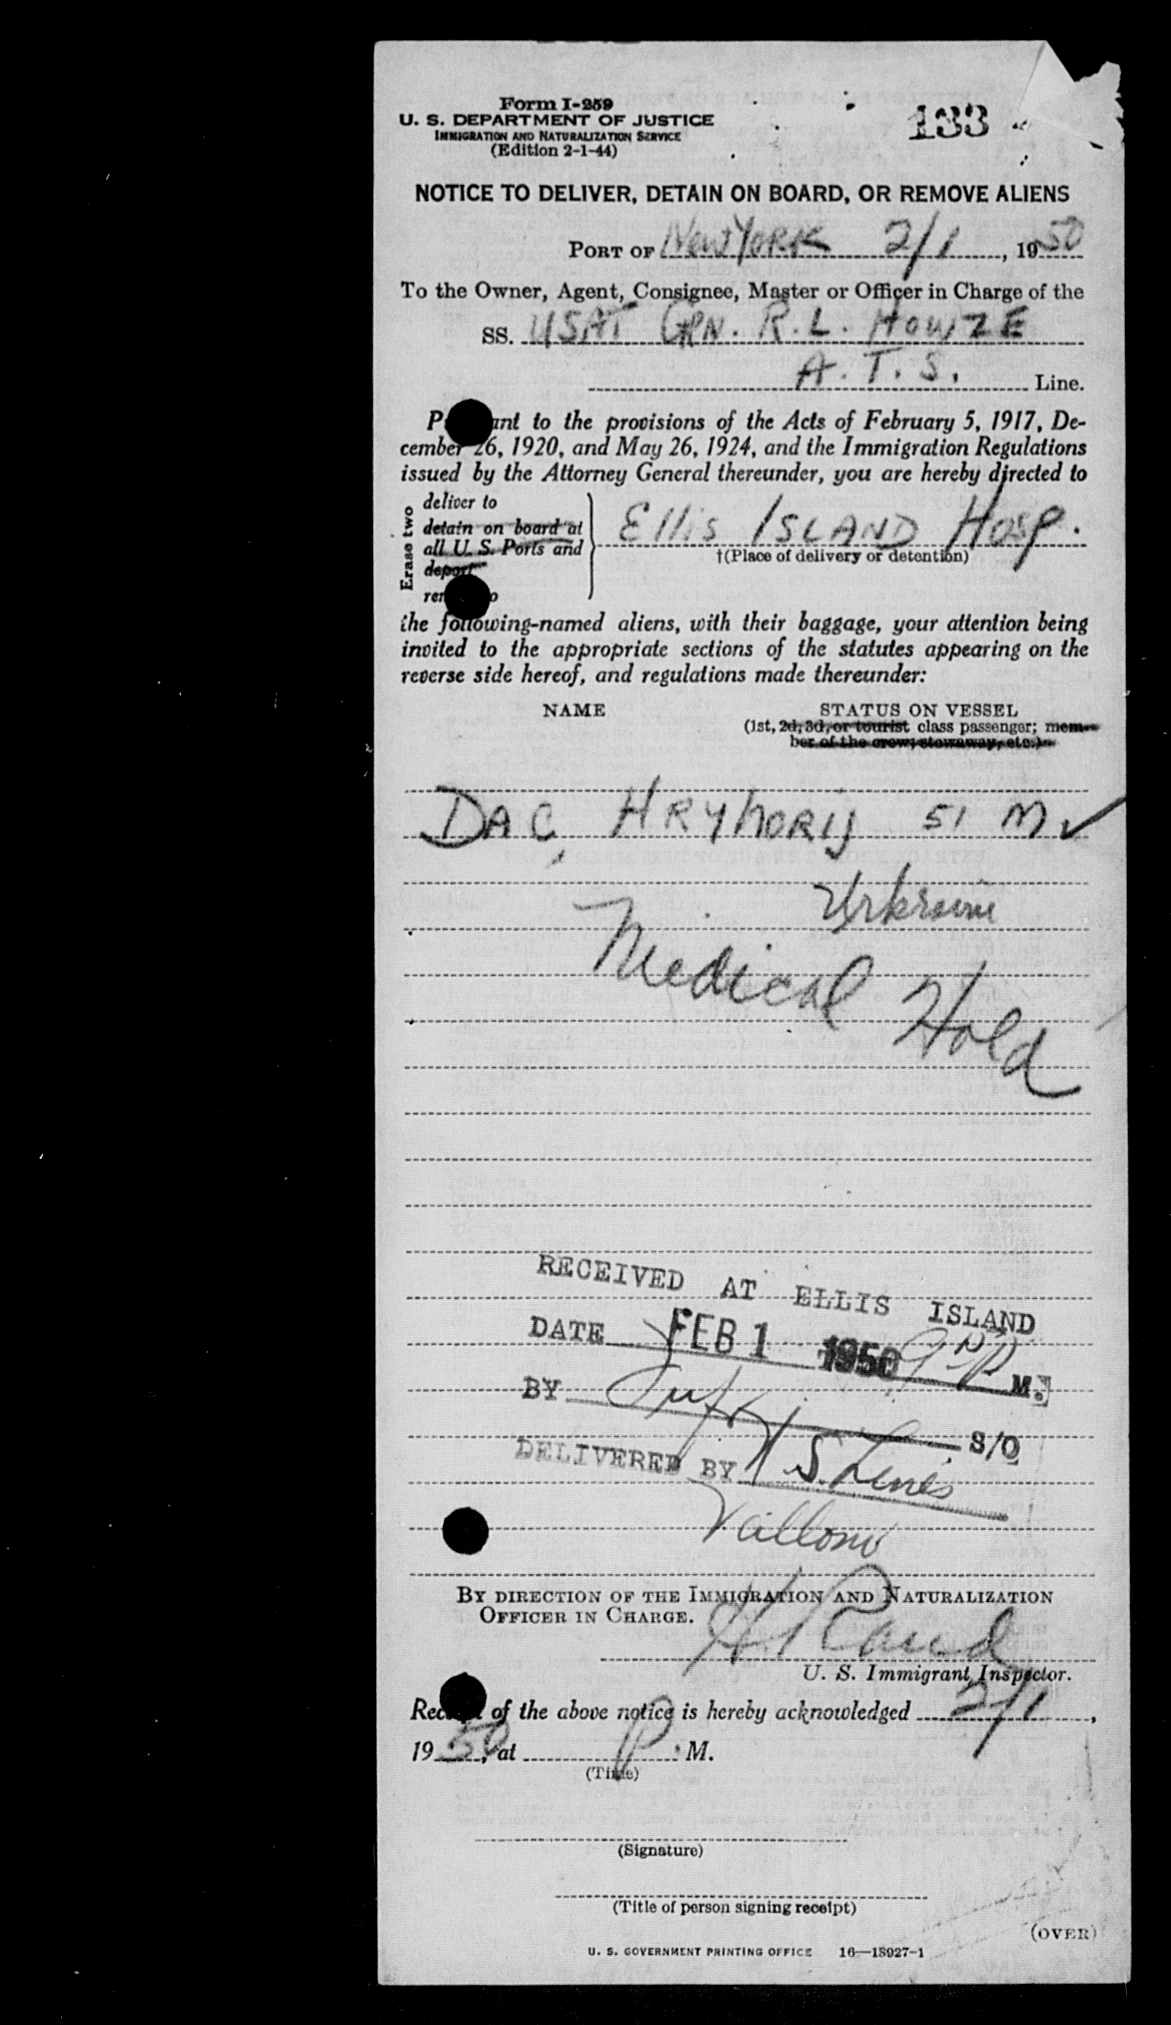 Form I-259
U. S. DEPARTMENT OF JUSTICE
IMMIGRATION AND NATURALIZATION SERVICE
(Edition 2-1-44)
133
NOTICE TO DELIVER, DETAIN ON BOARD, OR REMOVE ALIENS
PORT OF New York 2/1, 1950
To the Owner, Agent, Consignee, Master or Officer in Charge of the
SS. USAT GEN. R.L. HOWZE
A.T.S. Line.
to the provisions of the Acts of February 5, 1917, De-
cember 26, 1920, and May 26, 1924, and the Immigration Regulations
issued by the Attorney General thereunder, you are hereby directed to
Erase two
deliver to
detain on board at
all U. S. Ports and
deport
ELLIS ISLAND HOSP.
†(Place of delivery or detention)
the following-named aliens, with their baggage, your attention being
invited to the appropriate sections of the statutes appearing on the
reverse side hereof, and regulations made thereunder:
NAME STATUS ON VESSEL
(1st, 2d, 3d, or tourist class passenger; mem-
ber of the crew, stowaway, etc.)
DAC, HRYHORIJ 51 M ✓
Urkraine
Medical Hold
RECEIVED AT ELLIS ISLAND
DATE FEB 1 1950 P M.
BY S/O
DELIVERED BY
BY DIRECTION OF THE IMMIGRATION AND NATURALIZATION
OFFICER IN CHARGE.
H Rand
U. S. Immigrant Inspector.
Receipt of the above notice is hereby acknowledged 2/1,
1950, at P. M.
(Time)
(Signature)
(Title of person signing receipt)
(OVER)
U. S. GOVERNMENT PRINTING OFFICE 16—18927-1